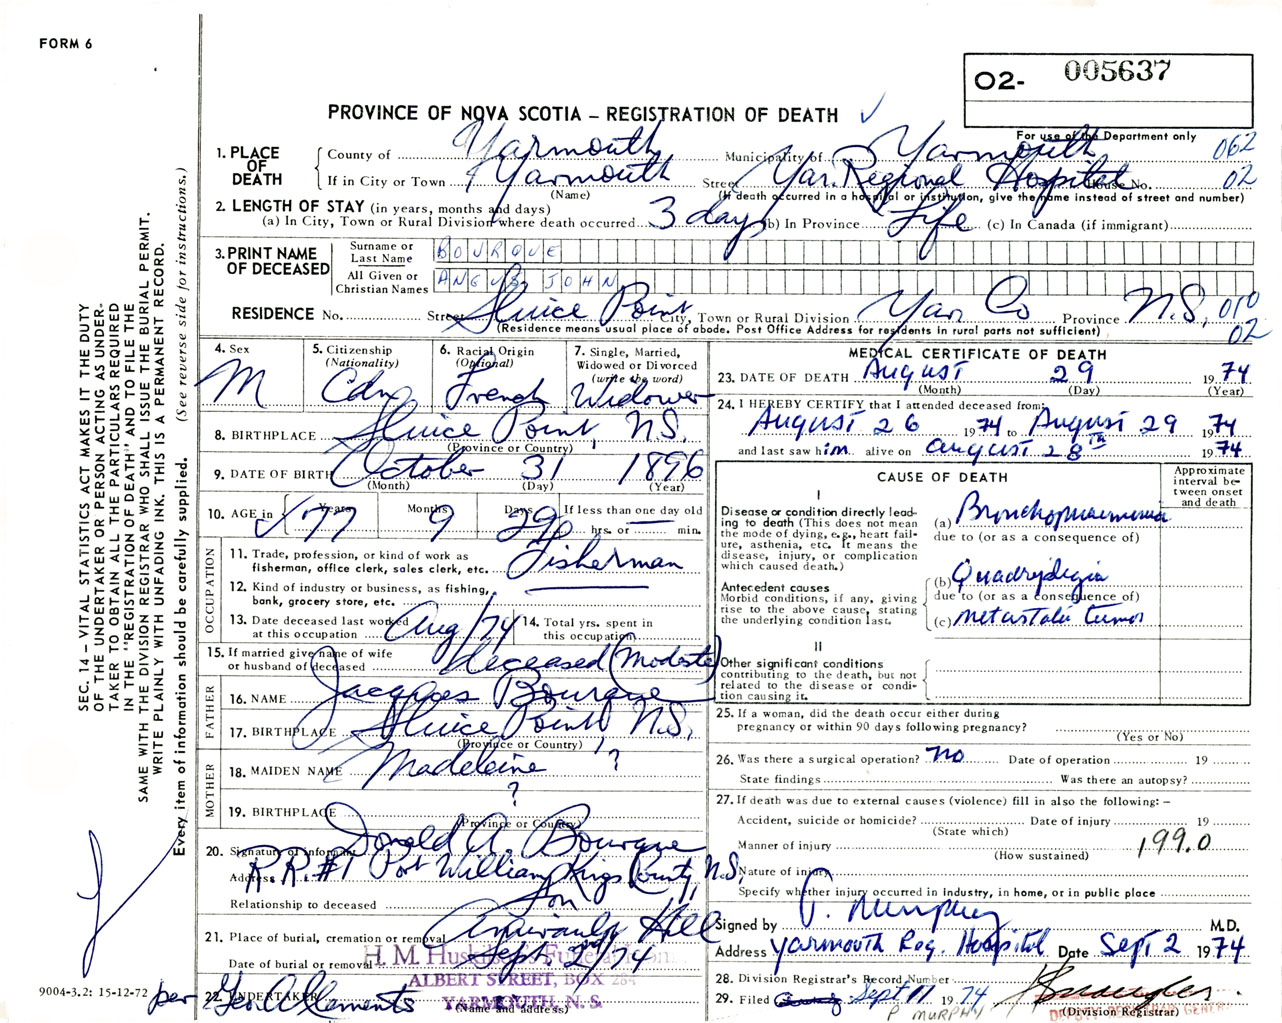 FORM 6
O2- 005637
PROVINCE OF NOVA SCOTIA – REGISTRATION OF DEATH ✓
For use of the Department only
1. PLACE OF DEATH
County of Yarmouth Municipality of Yarmouth 062
If in City or Town Yarmouth Street Yar. Regional Hospital House No. 02
(Name) (If death occurred in a hospital or institution, give the name instead of street and number)
2. LENGTH OF STAY (in years, months and days)
(a) In City, Town or Rural Division where death occurred 3 days (b) In Province Life (c) In Canada (if immigrant)
3. PRINT NAME OF DECEASED
Surname or Last Name BOURQUE
All Given or Christian Names ANGUS JOHN
RESIDENCE No. Street Sluice Point City, Town or Rural Division Yar. Co Province N.S. 010
02
(Residence means usual place of abode. Post Office Address for residents in rural parts not sufficient)
4. Sex M
5. Citizenship (Nationality) Cdn
6. Racial Origin (Optional) French
7. Single, Married, Widowed or Divorced (write the word) Widower
8. BIRTHPLACE Sluice Point, N.S.
(Province or Country)
9. DATE OF BIRTH October 31 1896
(Month) (Day) (Year)
10. AGE in Years Months Days If less than one day old
✓ 77 9 29 hrs. or min.
OCCUPATION
11. Trade, profession, or kind of work as fisherman, office clerk, sales clerk, etc. Fisherman
12. Kind of industry or business, as fishing, bank, grocery store, etc.
13. Date deceased last worked at this occupation Aug/74
14. Total yrs. spent in this occupation
15. If married give name of wife or husband of deceased deceased (Modeste)
FATHER
16. NAME Jacques Bourque
17. BIRTHPLACE Sluice Point, N.S.
(Province or Country)
MOTHER
18. MAIDEN NAME Madeleine ?
19. BIRTHPLACE ?
(Province or Country)
20. Signature of informant Donald A. Bourque
Address R R #1 Port William Kings County, N.S.
Relationship to deceased Son
21. Place of burial, cremation or removal Amirault Hill
Date of burial or removal Sept. 2nd/74
H. M. Huskilson Funeral Home
ALBERT STREET, BOX 284
YARMOUTH, N. S.
22. UNDERTAKER per Geo A Clements
(Name and address)
MEDICAL CERTIFICATE OF DEATH
23. DATE OF DEATH August 29 1974
(Month) (Day) (Year)
24. I HEREBY CERTIFY that I attended deceased from:
August 26 1974 to August 29 1974
and last saw him alive on August 28th 1974
CAUSE OF DEATH
Approximate interval between onset and death
I
Disease or condition directly leading to death (This does not mean the mode of dying, e.g., heart failure, asthenia, etc. It means the disease, injury, or complication which caused death.)
(a) Bronchopneumonia
due to (or as a consequence of)
Antecedent causes
Morbid conditions, if any, giving rise to the above cause, stating the underlying condition last.
(b) Quadriplegia
due to (or as a consequence of)
(c) metastatic tumor
II
Other significant conditions contributing to the death, but not related to the disease or condition causing it.
25. If a woman, did the death occur either during pregnancy or within 90 days following pregnancy?
(Yes or No)
26. Was there a surgical operation? No Date of operation 19
State findings Was there an autopsy?
27. If death was due to external causes (violence) fill in also the following: –
Accident, suicide or homicide? Date of injury 19
(State which)
Manner of injury 199.0
(How sustained)
Nature of injury
Specify whether injury occurred in industry, in home, or in public place
Signed by P. Murphy M.D.
Address Yarmouth Reg. Hospital Date Sept 2 1974
28. Division Registrar's Record Number
29. Filed Sept 11 1974
P MURPHY
(Division Registrar)
DEPUTY REGISTRAR GENERAL
SEC. 14 – VITAL STATISTICS ACT MAKES IT THE DUTY
OF THE UNDERTAKER OR PERSON ACTING AS UNDER-
TAKER TO OBTAIN ALL THE PARTICULARS REQUIRED
IN THE "REGISTRATION OF DEATH" AND TO FILE THE
SAME WITH THE DIVISION REGISTRAR WHO SHALL ISSUE THE BURIAL PERMIT.
WRITE PLAINLY WITH UNFADING INK. THIS IS A PERMANENT RECORD.
Every item of information should be carefully supplied. (See reverse side for instructions.)
9004-3.2: 15-12-72